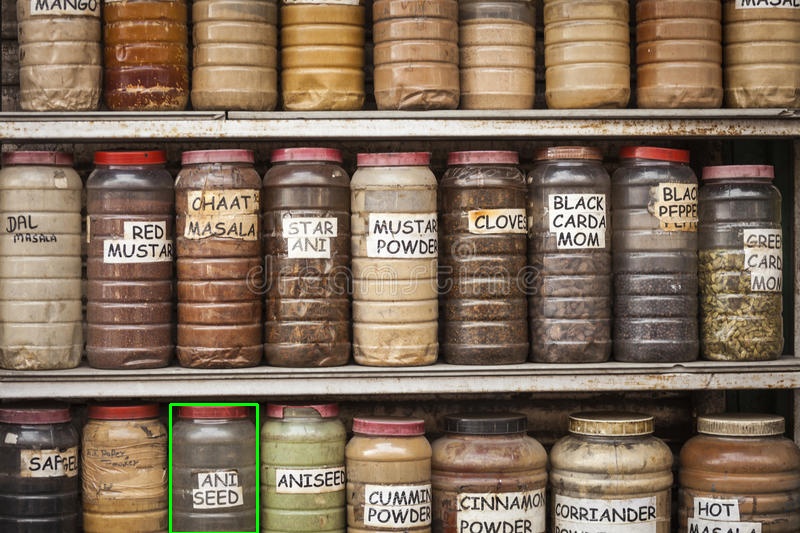 MANGO
MASAL
DAL
MASALA
RED
MUSTAR
CHAAT
MASALA
STAR
ANI
MUSTAR
POWDER
CLOVES
BLACK
CARDA
MOM
BLAC
PEPPER
GREEN
CARD
MON
SAFGEL
ANI
SEED
ANISEED
CUMMIN
POWDER
CINNAMON
POWDER
CORRIANDER
HOT
MASALA
dreamstime